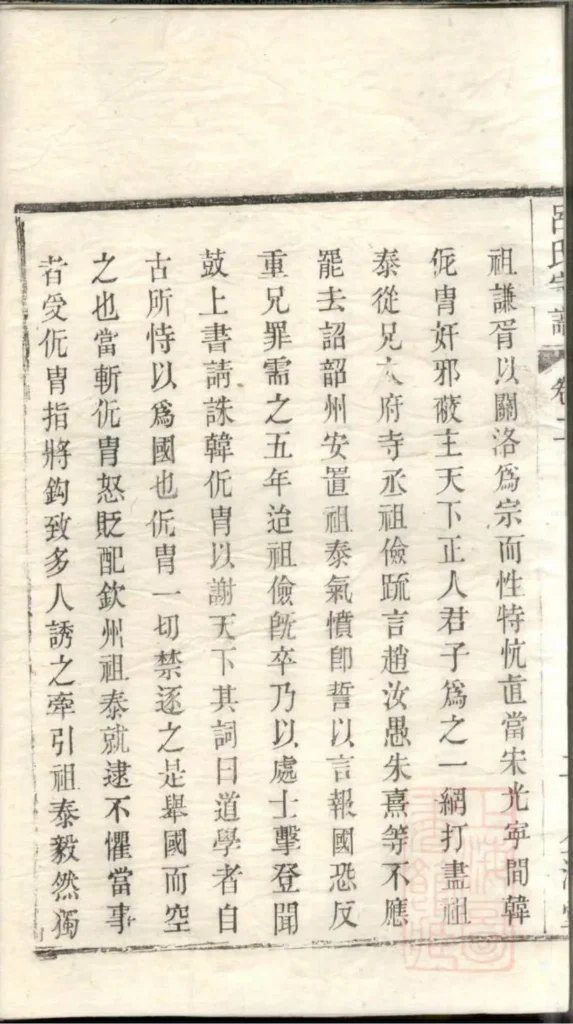 呂氏宗譜 卷
祖謙胥以關洛爲宗而性特忼直當宋光寧間韓
侂胄奸邪蔽主天下正人君子爲之一網打盡祖
泰從兄太府寺丞祖儉疏言趙汝愚朱熹等不應
罷去詔韶州安置祖泰氣憤卽誓以言報國恐反
重兄罪需之五年迨祖儉旣卒乃以處士擊登聞
鼓上書請誅韓侂胄以謝天下其詞曰道學者自
古所恃以爲國也侂胄一切禁逐之是舉國而空
之也當斬侂胄怒貶配欽州祖泰就逮不懼當事
者受侂胄指將鈎致多人誘之牽引祖泰毅然獨